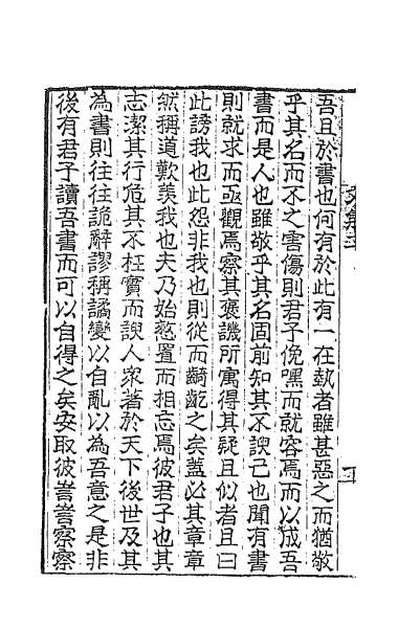 吾且於書也何有於此有一在埶者雖甚惡之而猶敬
乎其名而不之害傷則君子俛嘿而就容焉而以成吾
書而是人也雖敬乎其名固前知其不諛己也聞有書
則就求而亟觀焉察其褒譏所寓得其疑且似者且曰
此謗我也此怨非我也則從而齮齕之矣蓋必其章章
然稱道歎羨我也夫乃始慗置而相忘焉彼君子也其
志潔其行危其不枉實而諛人衆著於天下後世及其
為書則往往詭辭謬稱譎變以自亂以為吾意之是非
後有君子讀吾書而可以自得之矣安取彼訔訔察察